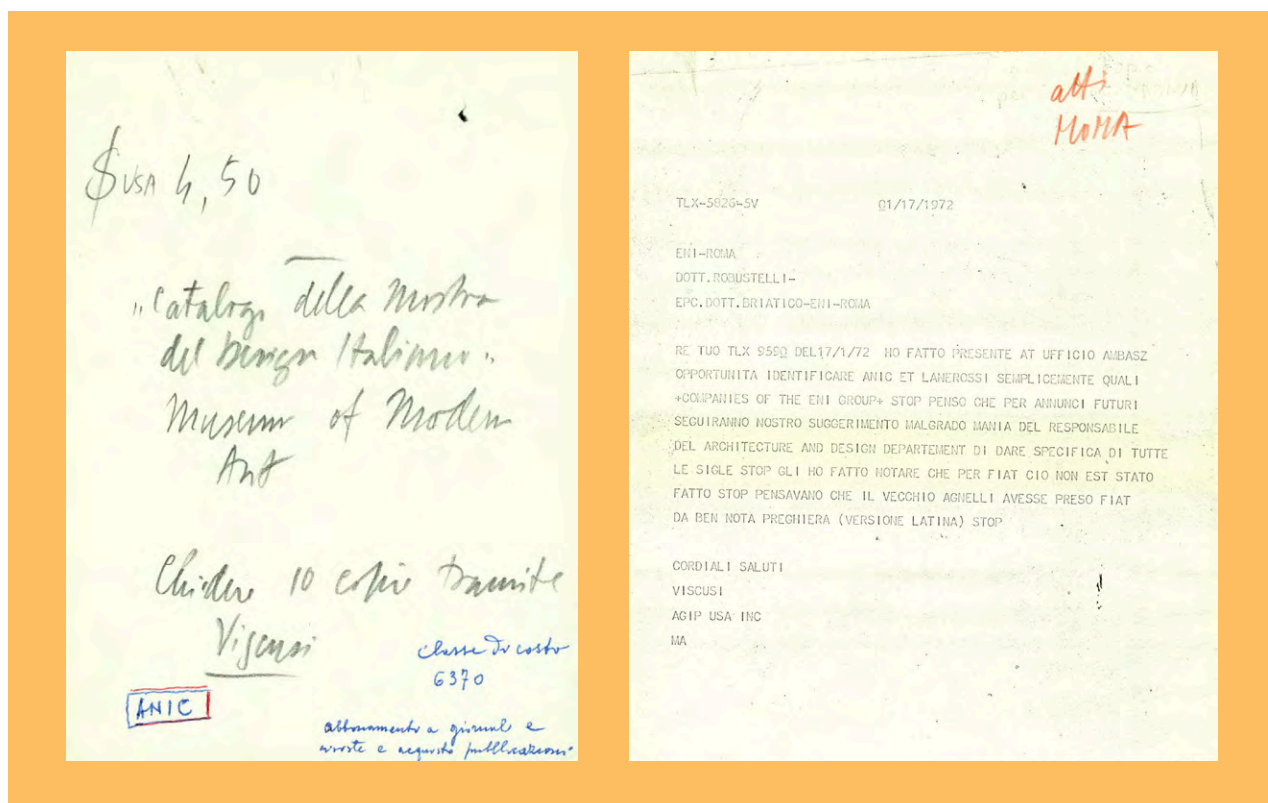 $ USA 4,50
"Catalogo della Mostra
del Design Italiano"
Museum of Modern
Art
Chiedere 10 copie tramite
Viscusi
classe di costo
6370
ANIC
abbonamento a giornali e
riviste e acquisto pubblicazioni
atti
MoMA
TLX-5826-5V 01/17/1972
ENI-ROMA
DOTT.ROBUSTELLI-
EPC.DOTT.BRIATICO-ENI-ROMA
RE TUO TLX 9590 DEL17/1/72 HO FATTO PRESENTE AT UFFICIO AMBASZ
OPPORTUNITA IDENTIFICARE ANIC ET LANEROSSI SEMPLICEMENTE QUALI
+COMPANIES OF THE ENI GROUP+ STOP PENSO CHE PER ANNUNCI FUTURI
SEGUIRANNO NOSTRO SUGGERIMENTO MALGRADO MANIA DEL RESPONSABILE
DEL ARCHITECTURE AND DESIGN DEPARTEMENT DI DARE SPECIFICA DI TUTTE
LE SIGLE STOP GLI HO FATTO NOTARE CHE PER FIAT CIO NON EST STATO
FATTO STOP PENSAVANO CHE IL VECCHIO AGNELLI AVESSE PRESO FIAT
DA BEN NOTA PREGHIERA (VERSIONE LATINA) STOP
CORDIALI SALUTI
VISCUSI
AGIP USA INC
MA